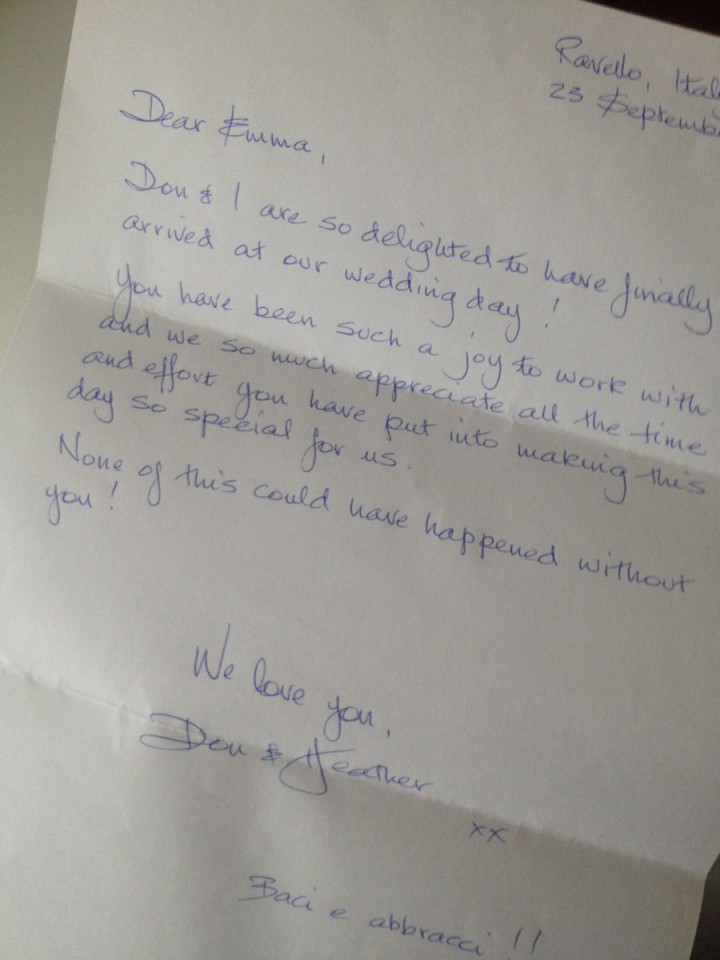 Ravello, Italy
23 September
Dear Emma,
Don & I are so delighted to have finally
arrived at our wedding day!
You have been such a joy to work with
and we so much appreciate all the time
and effort you have put into making this
day so special for us.
None of this could have happened without
you!
We love you,
Don & Heather
xx
Baci e abbracci!!